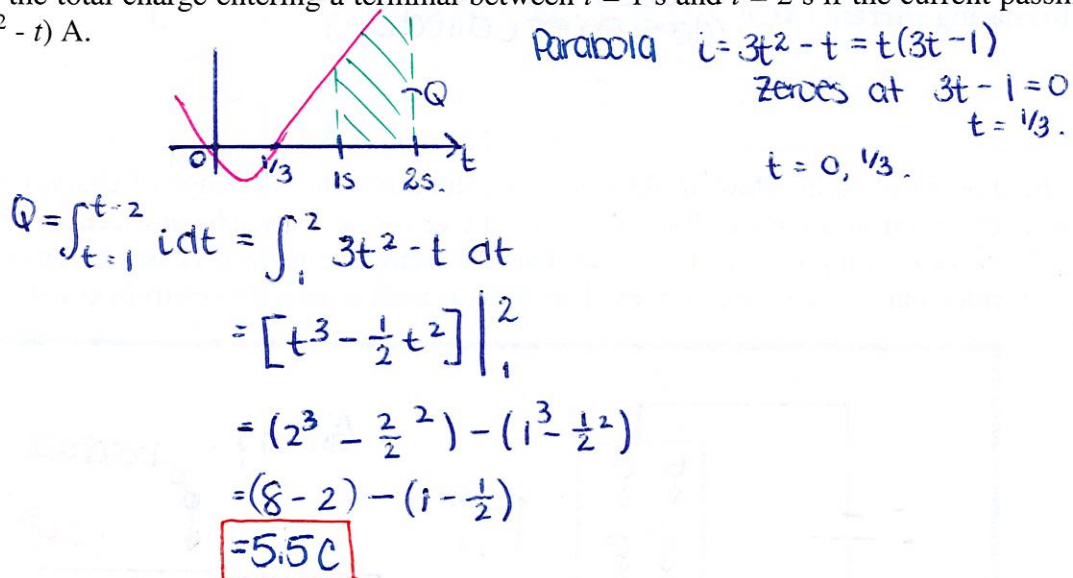 the total charge entering a terminal between t = 1 s and t = 2 s if the current passin
² - t) A.
Parabola i = 3t² - t = t(3t - 1)
Zeroes at 3t - 1 = 0
t = 1/3.
t = 0, 1/3.
Q
0 1/3 1s 2s. t
Q = ∫ t=1 t=2 i dt = ∫₁² 3t² - t dt
= [t³ - 1/2 t²] |₁²
= (2³ - 2/2 ²) - (1³ - 1/2 ²)
= (8 - 2) - (1 - 1/2)
= 5.5C